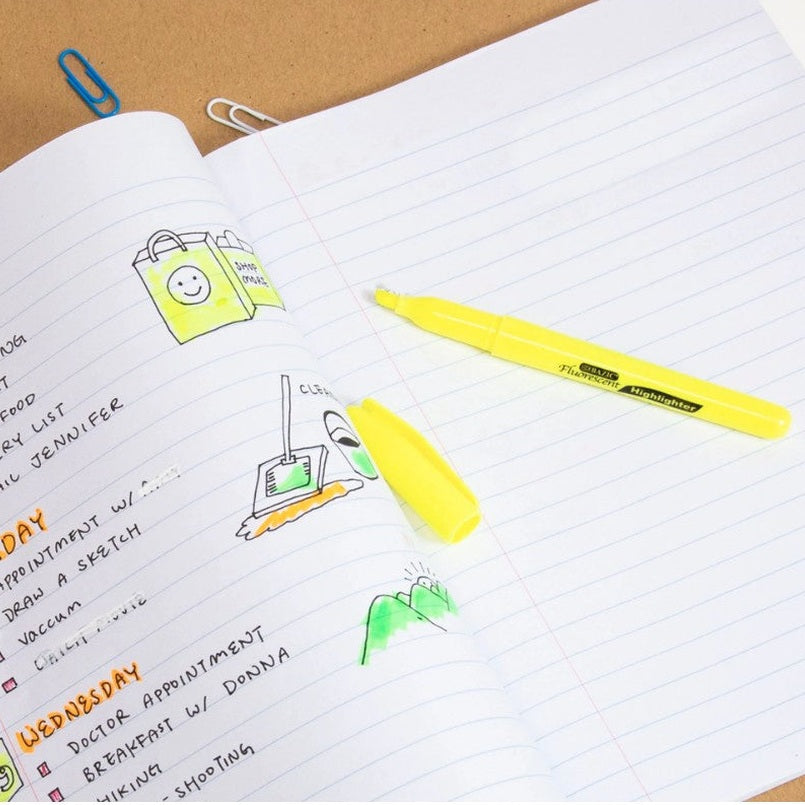 SHOP
MORE
NG
T
FOOD
RY LIST
IL JENNIFER
CLE
DAY
APPOINTMENT W/
DRAW A SKETCH
VACCUM
WEDNESDAY
DOCTOR APPOINTMENT
BREAKFAST W/ DONNA
HIKING
-SHOOTING
BAZIC
Fluorescent Highlighter